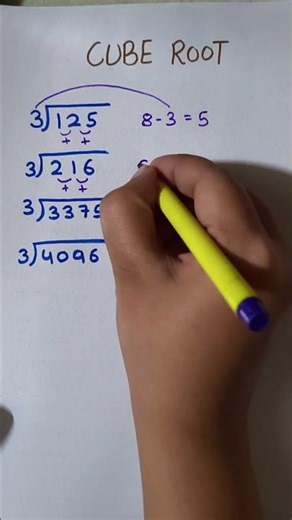 CUBE ROOT
3√125 8-3=5
+ +
3√216
+ +
3√3375
3√4096